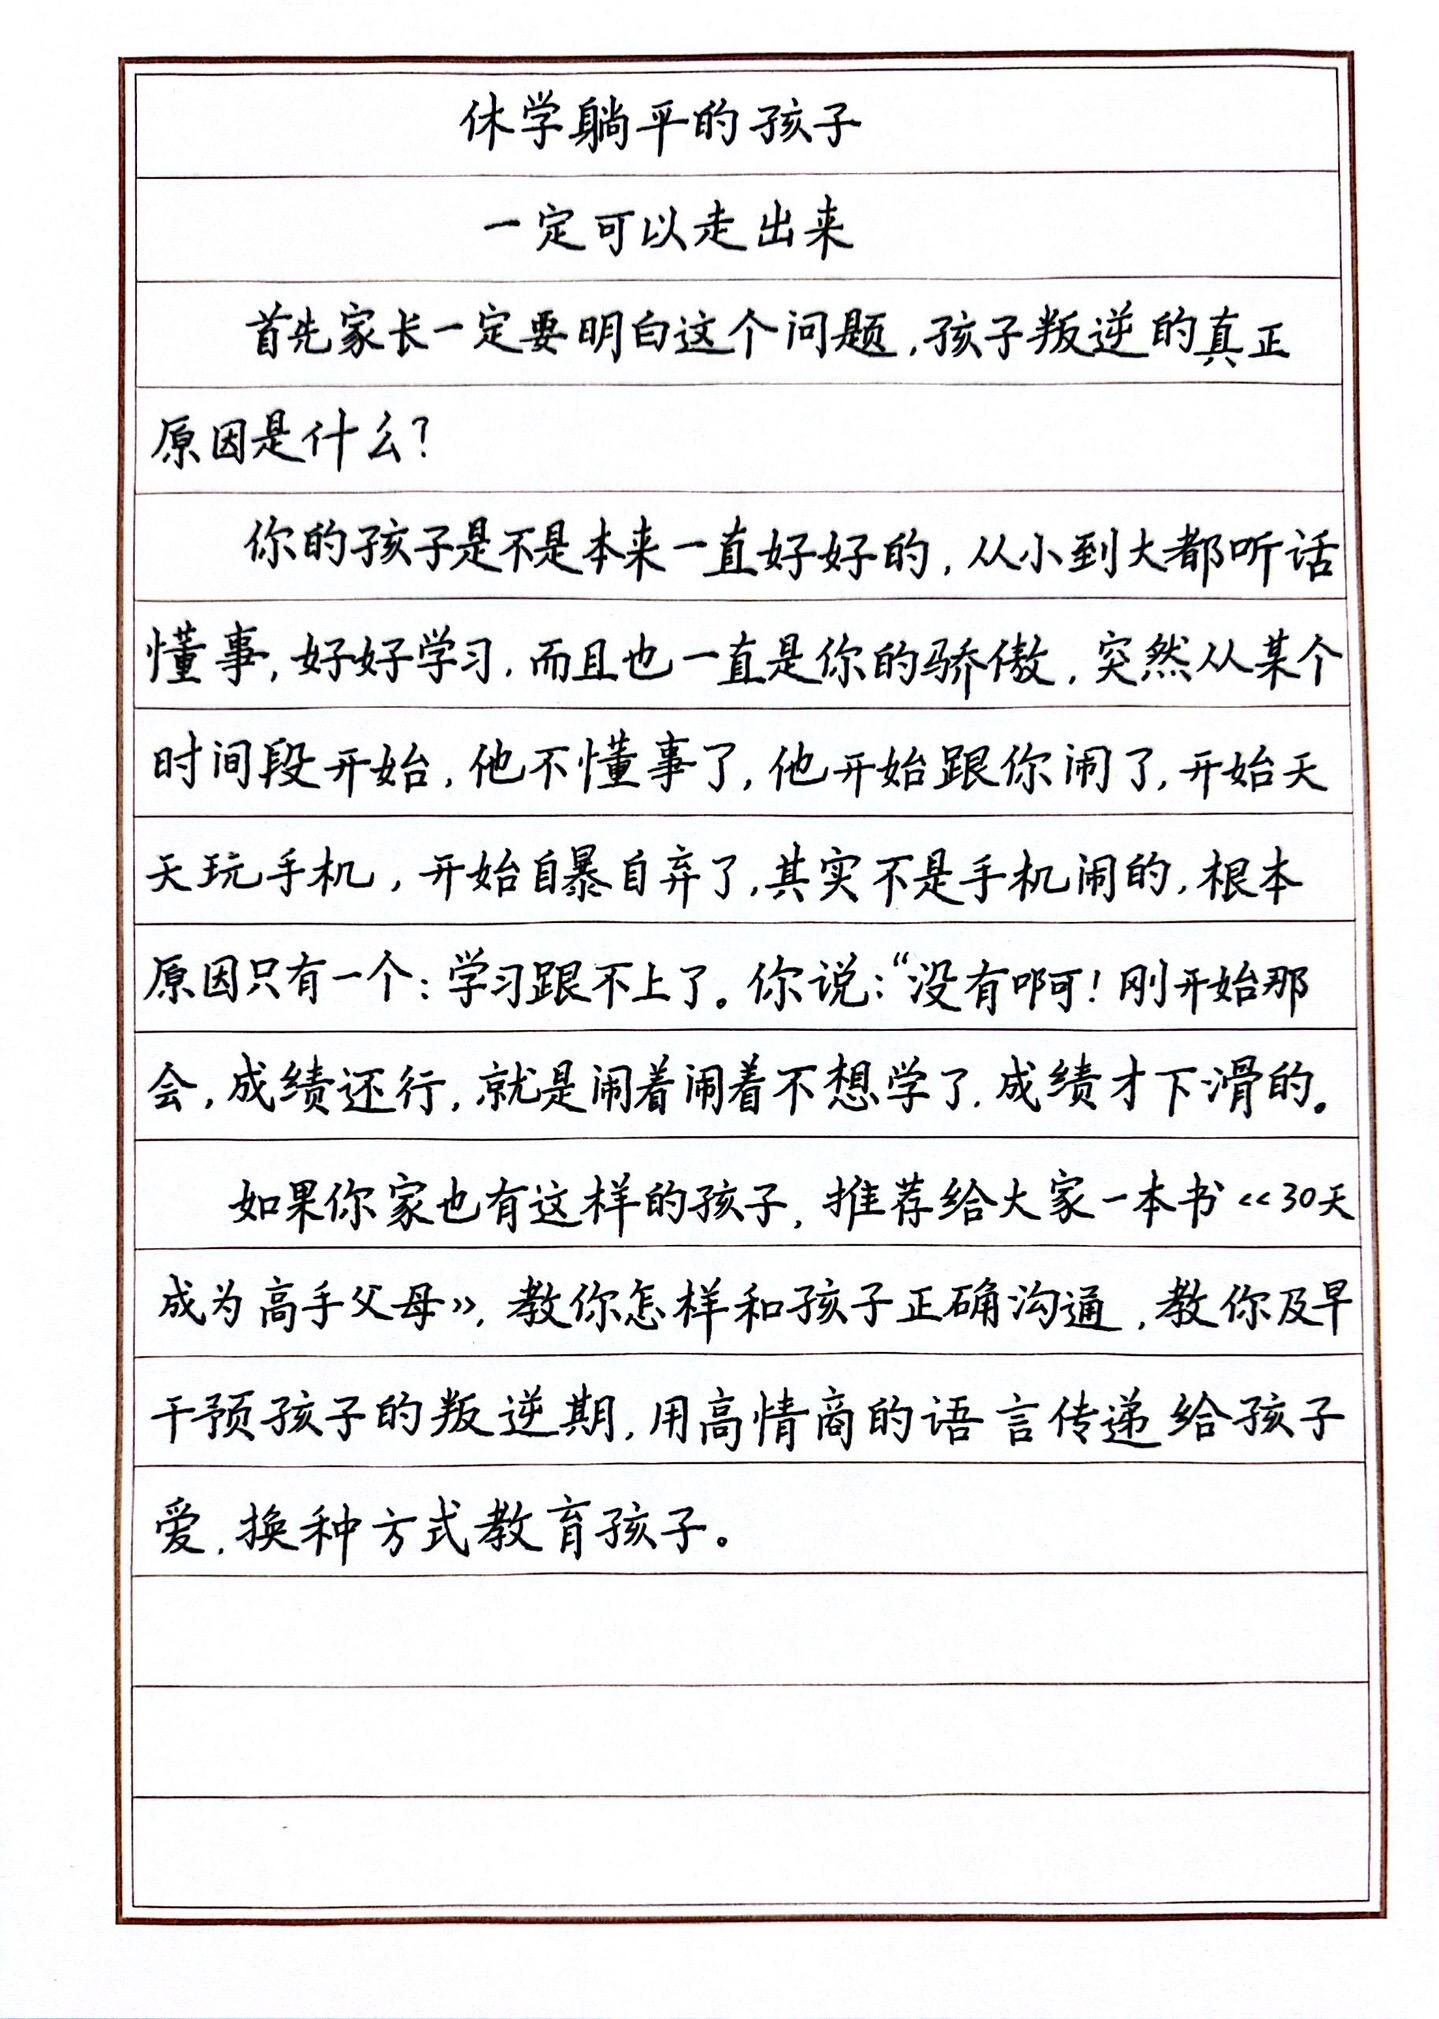 休学躺平的孩子
一定可以走出来
首先家长一定要明白这个问题,孩子叛逆的真正
原因是什么?
你的孩子是不是本来一直好好的,从小到大都听话
懂事,好好学习,而且也一直是你的骄傲,突然从某个
时间段开始,他不懂事了,他开始跟你闹了,开始天
天玩手机,开始自暴自弃了,其实不是手机闹的,根本
原因只有一个:学习跟不上了。你说:“没有啊!刚开始那
会,成绩还行,就是闹着闹着不想学了,成绩才下滑的。
如果你家也有这样的孩子,推荐给大家一本书《30天
成为高手父母》,教你怎样和孩子正确沟通,教你及早
干预孩子的叛逆期,用高情商的语言传递给孩子
爱,换种方式教育孩子。